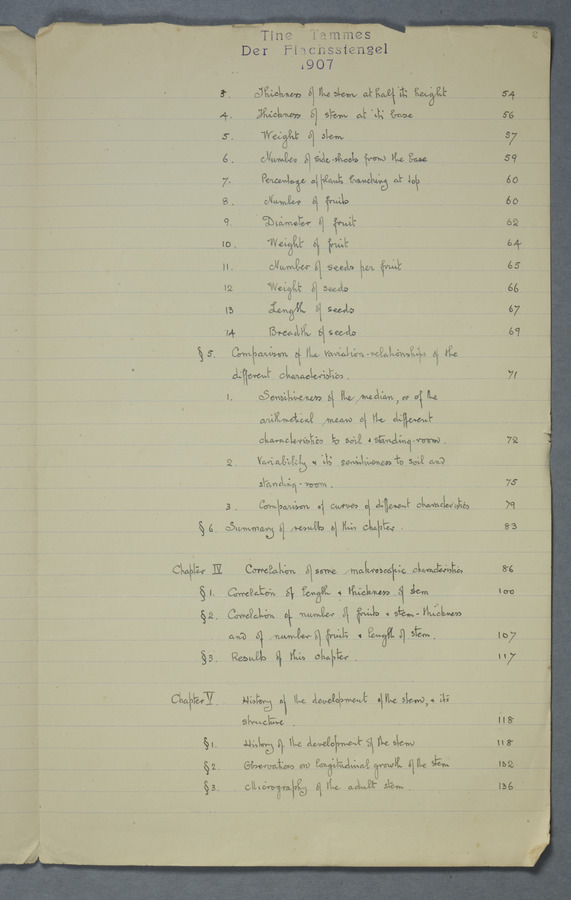 2
Tine Tammes
Der Flachsstengel
1907
3. Thickness of the stem at half its height 54
4. Thickness of stem at its base 56
5. Weight of stem 57
6. Number of side-shoots from the base 59
7. Percentage of plants branching at top 60
8. Number of fruits 60
9. Diameter of fruit 62
10. Weight of fruit 64
11. Number of seeds per fruit 65
12 Weight of seeds 66
13 Length of seeds 67
14 Breadth of seeds 69
§ 5. Comparison of the variation-relationships of the
different characteristics. 71
1. Sensitiveness of the median, or of the
arithmetical mean of the different
characteristics to soil & standing-room. 72
2. Variability & its sensitiveness to soil and
standing-room. 75
3. Comparison of curves of different characteristics 79
§ 6. Summary of results of this chapter. 83
Chapter IV Correlation of some makroscopic characteristics 86
§ 1. Correlation of length & thickness of stem 100
§ 2. Correlation of number of fruits & stem-thickness
and of number of fruits & length of stem. 107
§ 3. Results of this chapter. 117
Chapter V. History of the development of the stem, & its
structure. 118
§ 1. History of the development of the stem 118
§ 2. Observations on longitudinal growth of the stem 132
§ 3. Micrography of the adult stem. 136